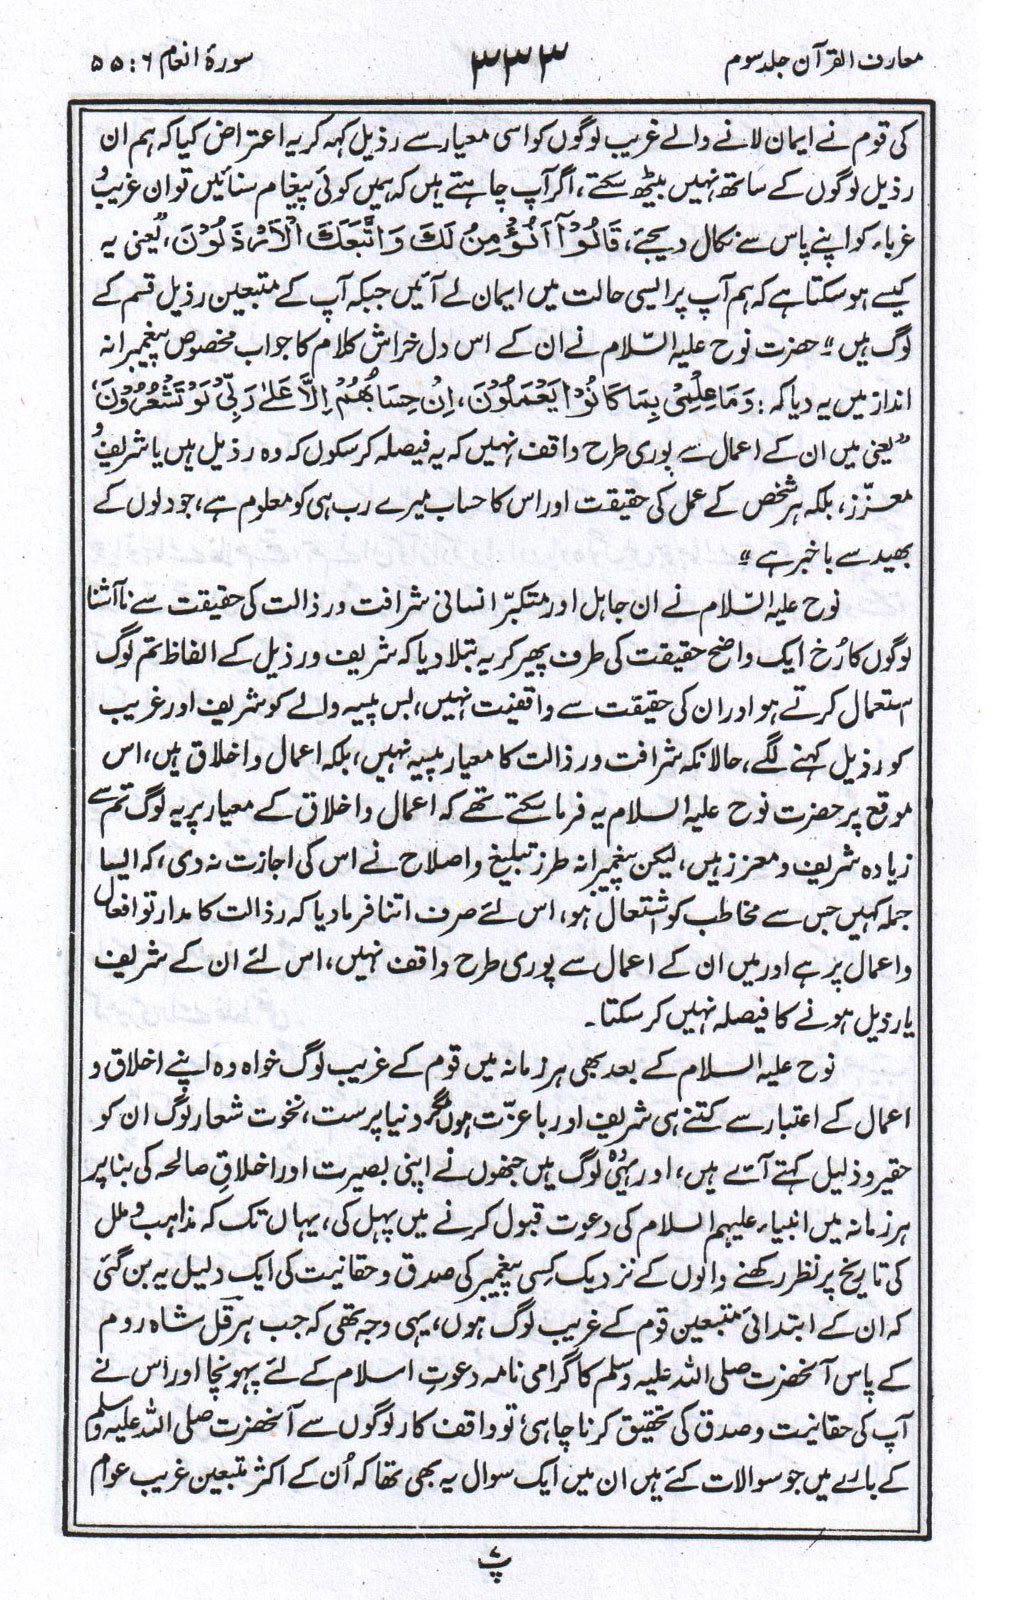 معارف القرآن جلد سوم
۳۳۳
سورۂ انعام ۶ : ۵۵
کی قوم نے ایمان لانے والے غریب لوگوں کو اسی معیار سے رذیل کہہ کر یہ اعتراض کیا کہ ہم ان
رذیل لوگوں کے ساتھ نہیں بیٹھ سکتے، اگر آپ چاہتے ہیں کہ ہمیں کوئی پیغام سنائیں تو ان غریب و
غرباء کو اپنے پاس سے نکال دیجئے، قَالُوْٓا اَنُؤْمِنُ لَكَ وَاتَّبَعَكَ الْاَرْذَلُوْنَ، "یعنی یہ
کیسے ہو سکتا ہے کہ ہم آپ پر ایسی حالت میں ایمان لے آئیں جبکہ آپ کے متبعین رذیل قسم کے
لوگ ہیں" حضرت نوح علیہ السّلام نے ان کے اس دل خراش کلام کا جواب مخصوص پیغمبرانہ
انداز میں یہ دیا کہ: وَمَا عِلْمِيْ بِمَا كَانُوْا يَعْمَلُوْنَ، اِنْ حِسَابُهُمْ اِلَّا عَلٰى رَبِّيْ لَوْ تَشْعُرُوْنَ،
"یعنی میں ان کے اعمال سے پوری طرح واقف نہیں کہ یہ فیصلہ کر سکوں کہ وہ رذیل ہیں یا شریف و
معزّز، بلکہ ہر شخص کے عمل کی حقیقت اور اس کا حساب میرے رب ہی کو معلوم ہے، جو دلوں کے
بھید سے باخبر ہے"
نوح علیہ السّلام نے ان جاہل اور متکبّر انسانی شرافت و رذالت کی حقیقت سے ناآشنا
لوگوں کا رُخ ایک واضح حقیقت کی طرف پھیر کر یہ بتلا دیا کہ شریف و رذیل کے الفاظ تم لوگ
استعمال کرتے ہو اور ان کی حقیقت سے واقفیت نہیں، بس پیسہ والے کو شریف اور غریب
کو رذیل کہنے لگے، حالانکہ شرافت و رذالت کا معیار پیسہ نہیں، بلکہ اعمال و اخلاق ہیں، اس
موقع پر حضرت نوح علیہ السلام یہ فرما سکتے تھے کہ اعمال و اخلاق کے معیار پر یہ لوگ تم سے
زیادہ شریف و معزز ہیں، لیکن پیغمبرانہ طرز تبلیغ و اصلاح نے اس کی اجازت نہ دی، کہ ایسا
جملہ کہیں جس سے مخاطب کو اشتعال ہو، اس لئے صرف اتنا فرما دیا کہ رذالت کا مدار تو افعال
و اعمال پر ہے اور میں ان کے اعمال سے پوری طرح واقف نہیں، اس لئے ان کے شریف
یا رذیل ہونے کا فیصلہ نہیں کر سکتا۔
نوح علیہ السلام کے بعد بھی ہر زمانہ میں قوم کے غریب لوگ خواہ وہ اپنے اخلاق و
اعمال کے اعتبار سے کتنے ہی شریف اور باعزّت ہوں مگر دنیا پرست، نخوت شعار لوگ ان کو
حقیر و ذلیل کہتے آتے ہیں، اور یہی لوگ ہیں جنھوں نے اپنی بصیرت اور اخلاقِ صالحہ کی بنا پر
ہر زمانہ میں انبیاء علیہم السلام کی دعوت قبول کرنے میں پہل کی، یہاں تک کہ مذاہب و ملل
کی تاریخ پر نظر رکھنے والوں کے نزدیک کسی پیغمبر کی صدق و حقانیت کی ایک دلیل یہ بن گئی
کہ ان کے ابتدائی متبعین قوم کے غریب لوگ ہوں، یہی وجہ تھی کہ جب ہرقل شاہ روم
کے پاس آنحضرت صلی اللہ علیہ وسلم کا گرامی نامہ دعوتِ اسلام کے لئے پہونچا اور اس نے
آپ کی حقانیت و صدق کی تحقیق کرنا چاہی، تو واقف کار لوگوں سے آنحضرت صلی اللہ علیہ وسلم
کے بارے میں جو سوالات کئے ہیں ان میں ایک سوال یہ بھی تھا کہ اُن کے اکثر متبعین غریب عوام
پ ۷